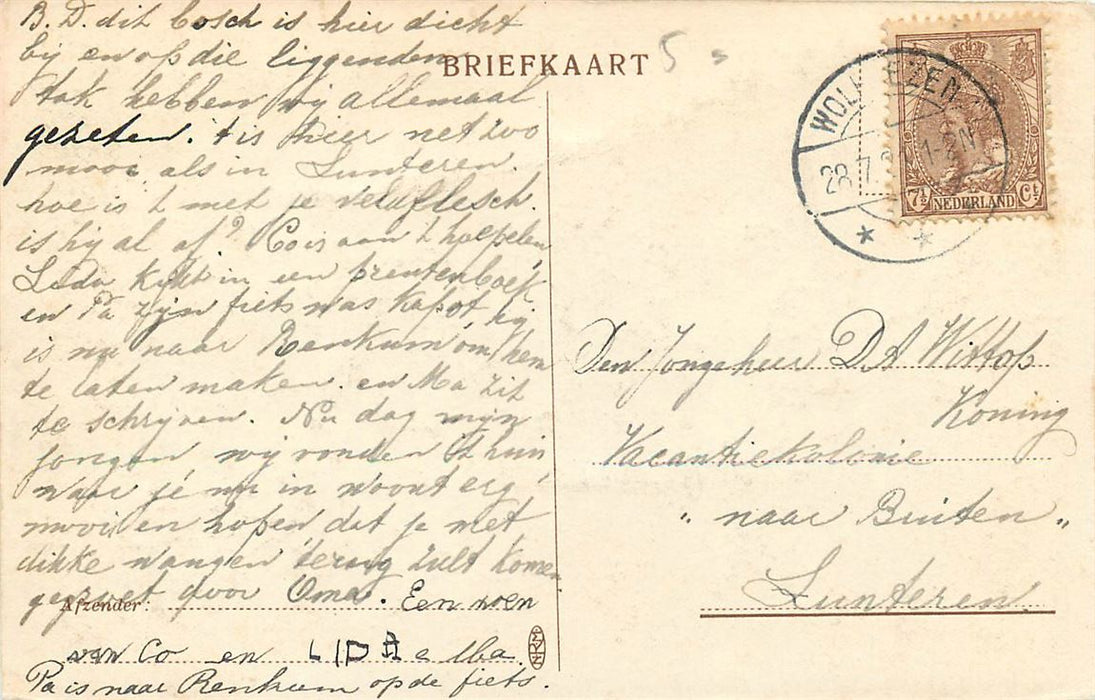 B. D. dit bosch is hier dicht
bij en op die liggenden
tak hebben wij allemaal
gezeten. 't is hier net zoo
mooi als in Lunteren.
hoe is 't met je veldflesch.
is hij al af? Co is aan 't hoepelen,
Lida kijkt in een prentenboek
en Pa zijn fiets was kapot hij
is nu naar Renkum om hem
te laten maken. en Ma zit
te schrijven. Nu dag mijn
jongen wij vonden 't huis
waar je nu in woont erg
mooi en hopen dat je met
dikke wangen terug zult komen
gegroet door Oma. Een zoen
Afzender:
van Co en LIDA e
Pa is naar Renkum op de fiets.
BRIEFKAART 5
28.7
7½ NEDERLAND Ct
Den Jongeheer D A Wittop
Koning
Vacantiekolonie
"naar Buiten"
Lunteren